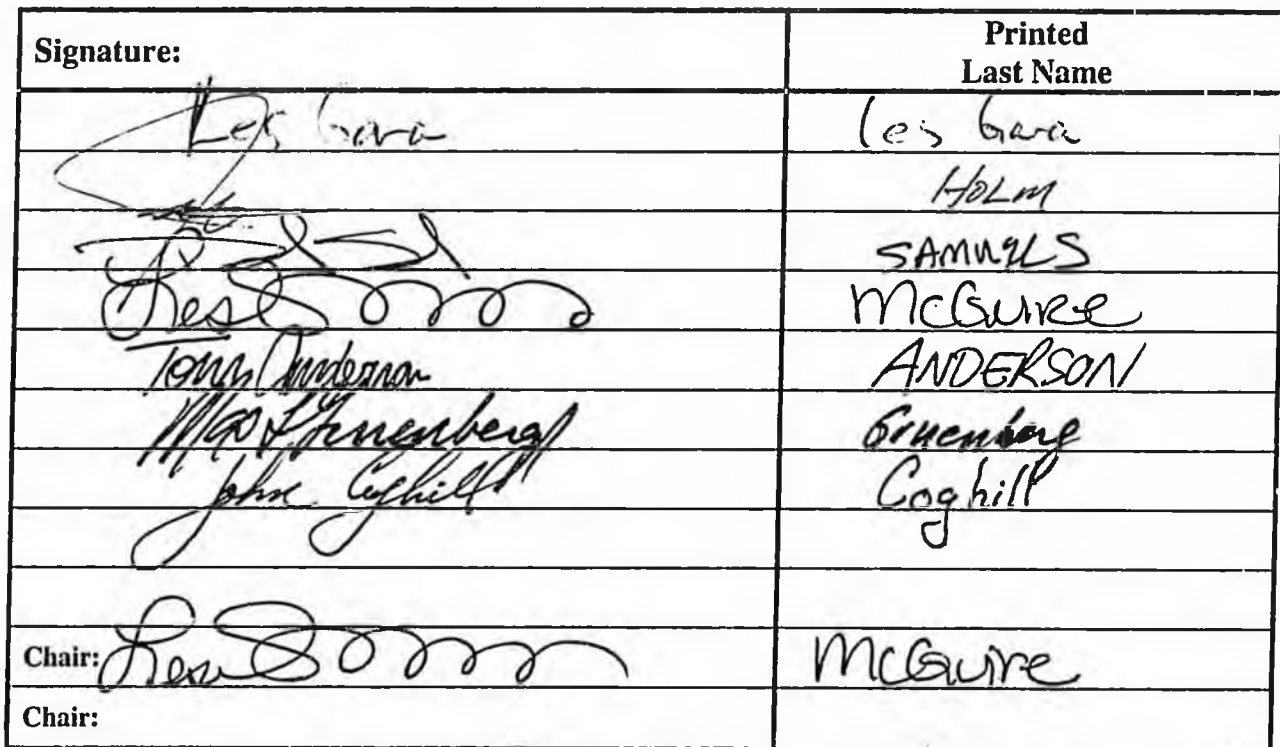 Signature: Printed Last Name
Les Gara Les Gara
HOLM
SAMUELS
McGuire
Tom Anderson ANDERSON
Max F Gruenberg Gruenberg
John Coghill Coghill
Chair: McGuire
Chair: